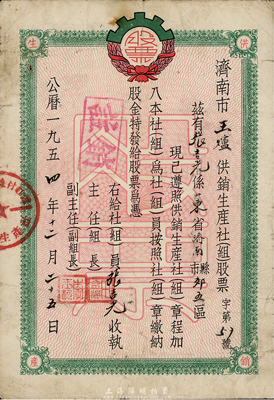 供
生
銷
產
濟南市王盧供銷生產社組股票 字第59號
茲有張立克係山東省濟南市縣郊五區
現已遵照供銷生產社(組)章程加
入本社(組)爲社(組)員按照社(組)章繳納
股金特發給股票爲憑
右給社(組)員張立克收執
主任組長
副主任(副組長)
公曆一九五四年十二月二十五日
註銷